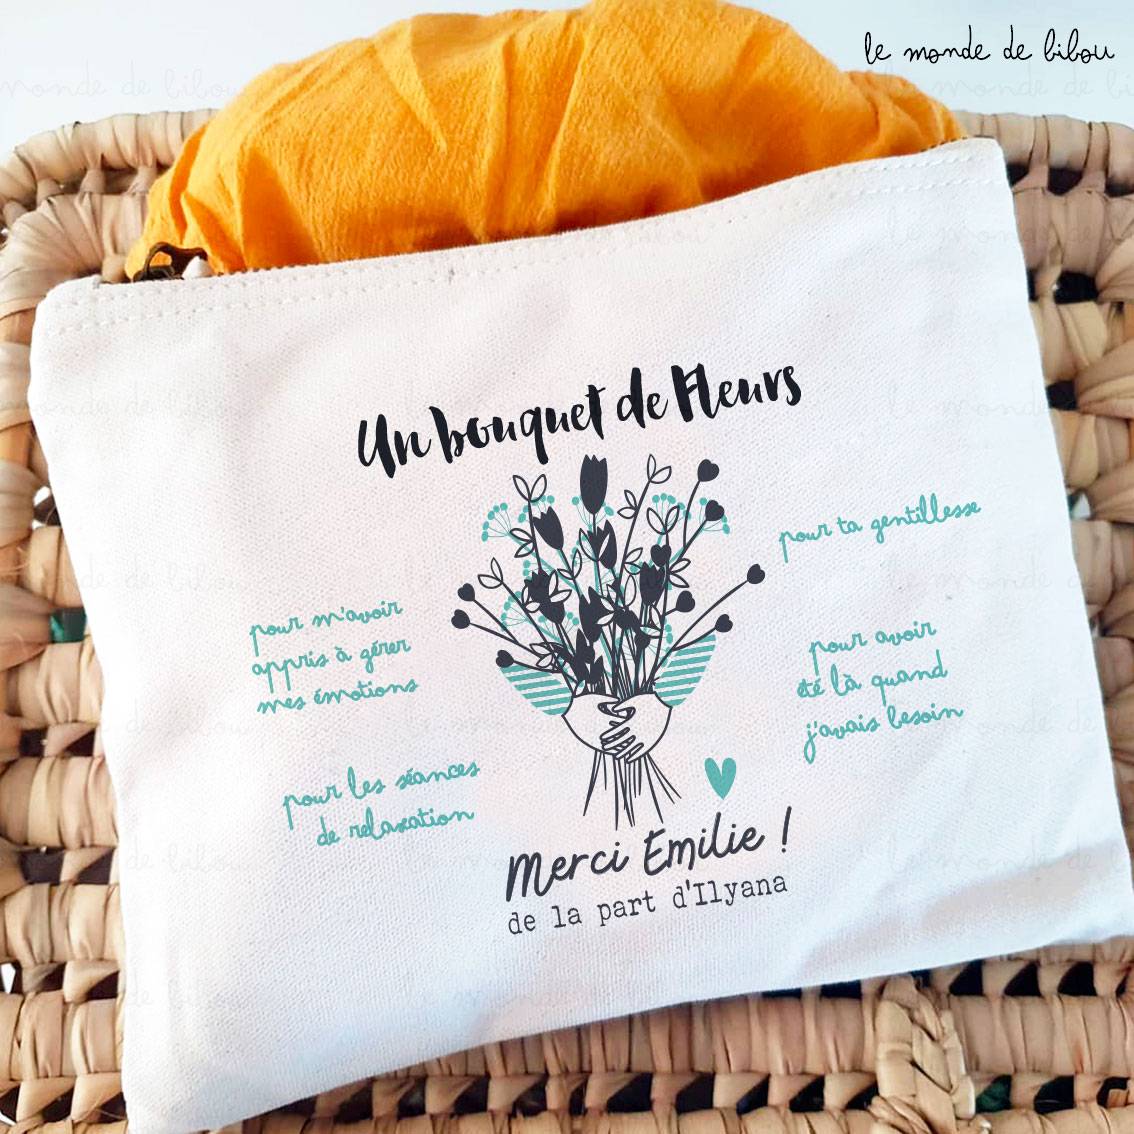 le monde de bibou
Un bouquet de Fleurs
pour ta gentillesse
pour m'avoir
appris à gérer
mes émotions
pour avoir
été là quand
j'avais besoin
pour les séances
de relaxation
Merci Emilie !
de la part d'Ilyana